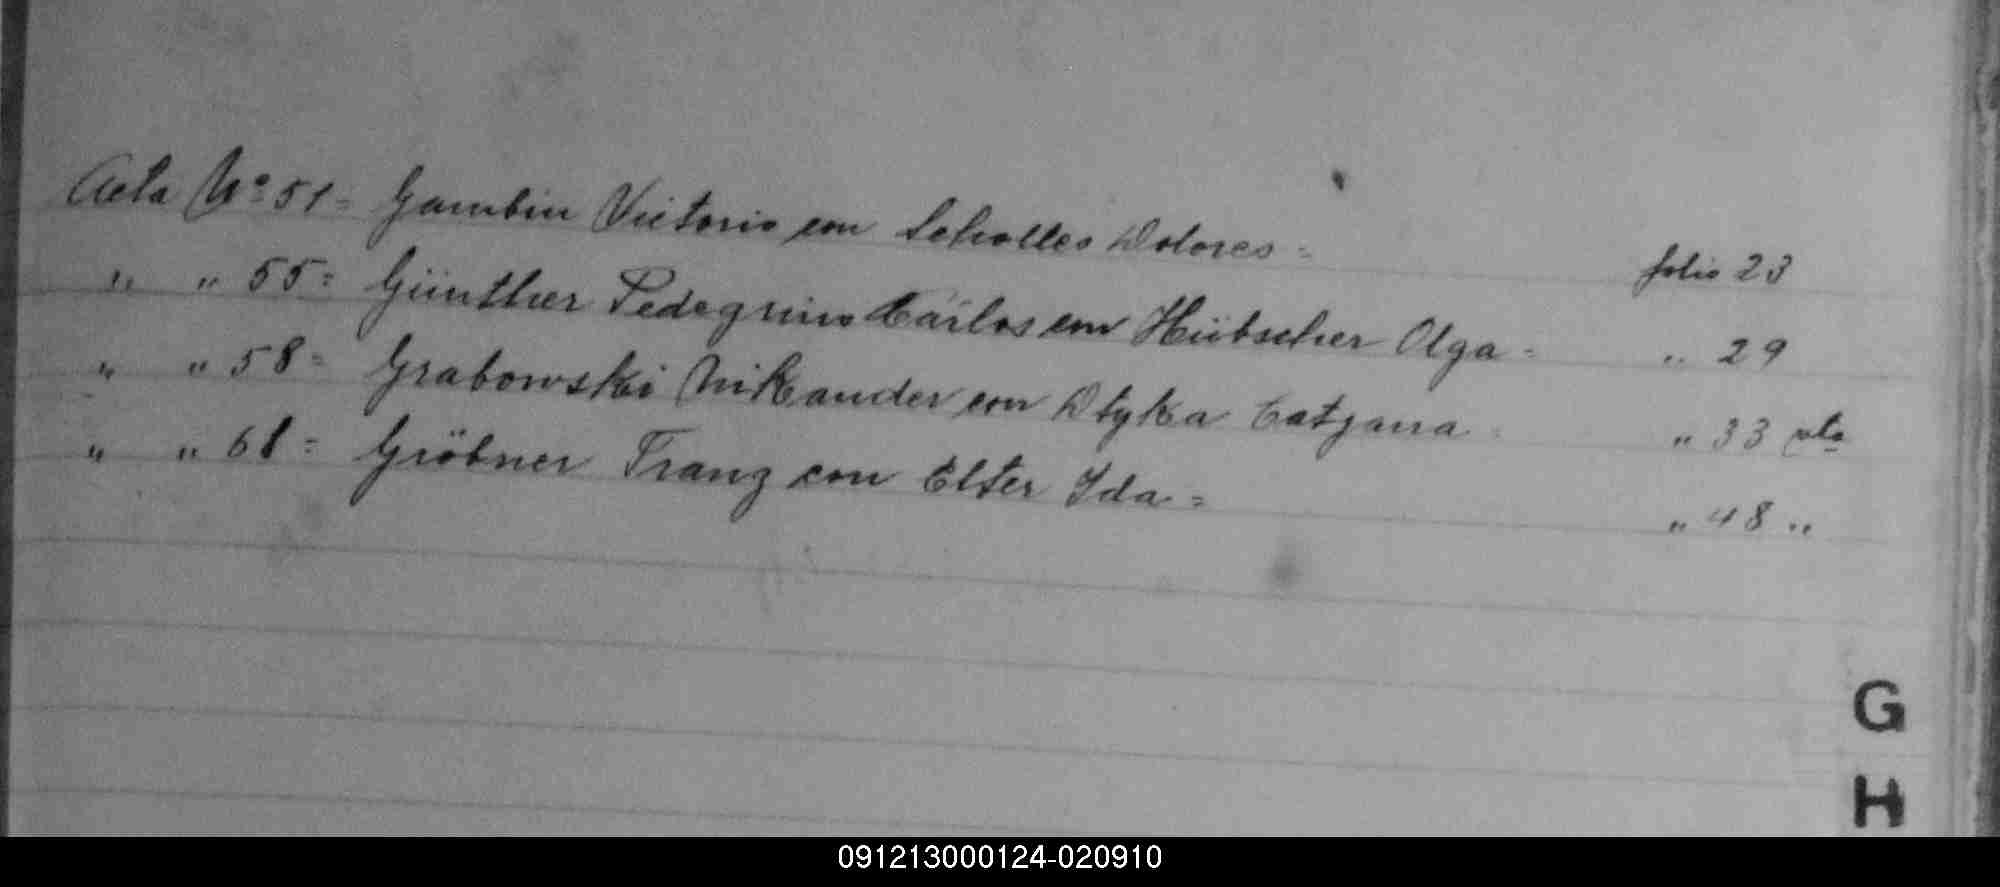 Acta Nº 51 = Gambin Victorio con Scholles Dolores = folio 23
" " 55 = Günther Pedegrino Carlos con Hübscher Olga = " 29
" " 58 = Grabowski Nikander con Dlyka Catjana = " 33 vta
" " 61 = Gröbner Franz con Elter Ida = " 48 "
G
H
091213000124-020910